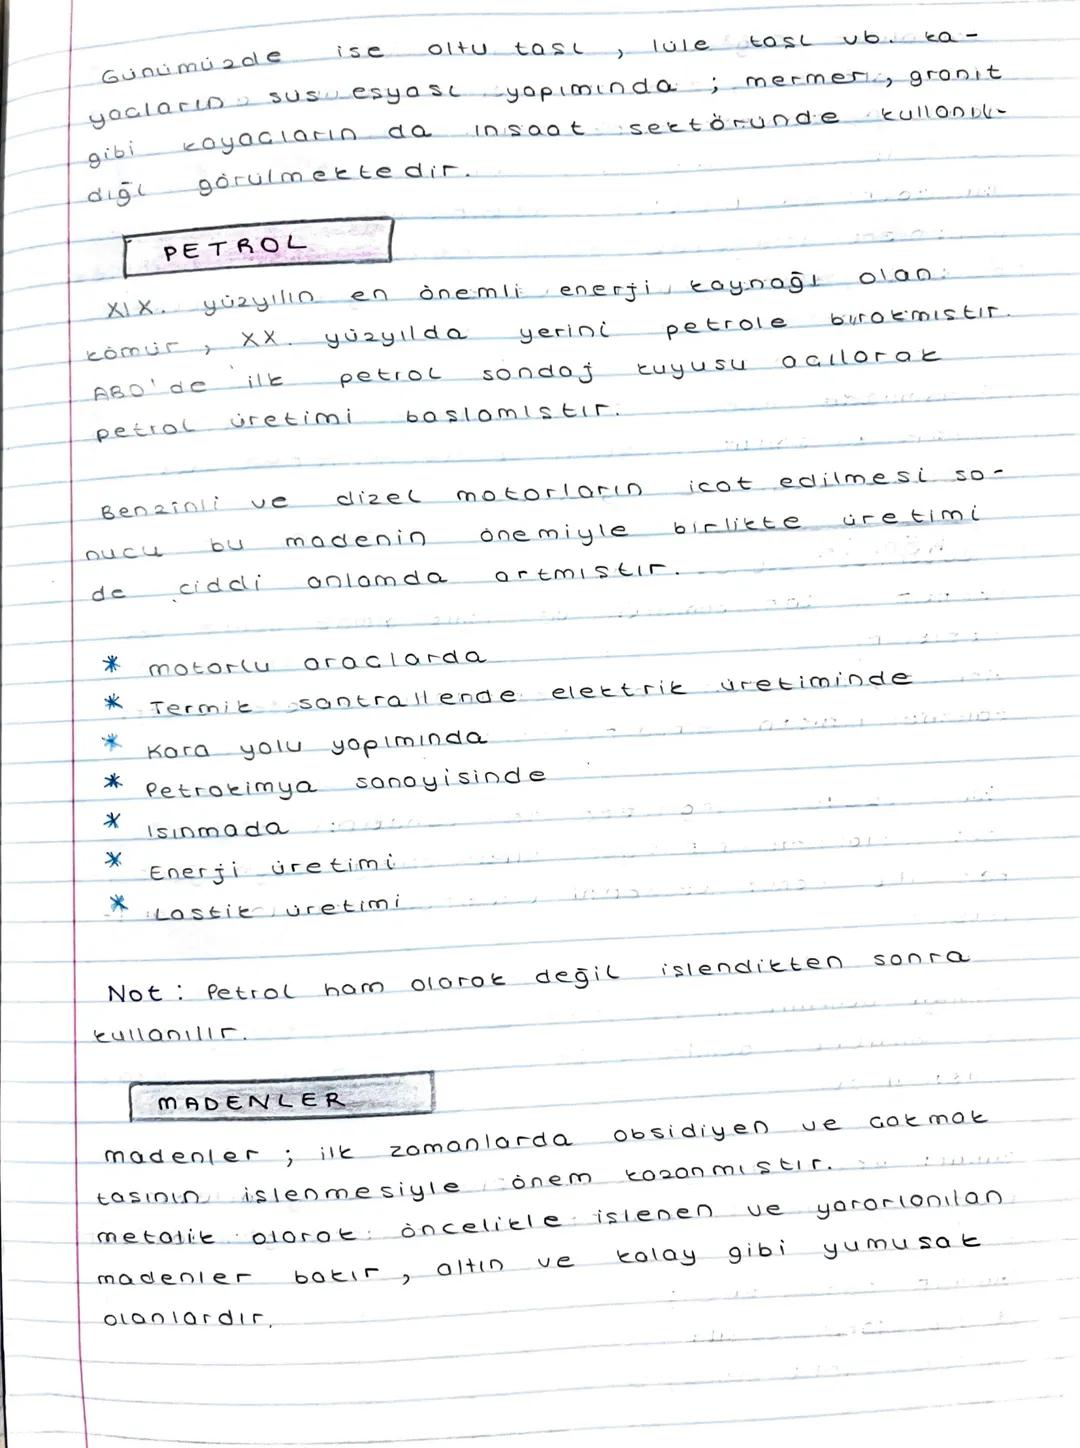 Günümüzde ise oltu tası, lüle tası vb. ka-
yacların süs esyası yapımında ; mermer, granit
gibi kayacların da insaat sektöründe kullanıl-
dığı görülmektedir.
PETROL
XIX. yüzyılın en önemli enerji kaynağı olan
kömür, XX. yüzyılda yerini petrole bırakmıstır.
ABD'de ilk petrol sondaj kuyusu acılarak
petrol üretimi baslamıstır.
Benzinli ve dizel motorların icat edilmesi so-
nucu bu madenin önemiyle birlikte üretimi
de ciddi anlamda artmıstır.
* motorlu araclarda
* Termik santrallende elektrik üretiminde
* Kara yolu yapımında
* Petrokimya sanayisinde
* Isınmada
* Enerji üretimi
* Lastik üretimi
Not : Petrol ham olarak değil islendikten sonra
kullanılır.
MADENLER
madenler ; ilk zamanlarda obsidiyen ve cakmak
tasının islenmesiyle önem kazanmıstır.
metalik olarak öncelikle islenen ve yararlanılan
madenler bakır, altın ve kalay gibi yumusak
olanlardır.